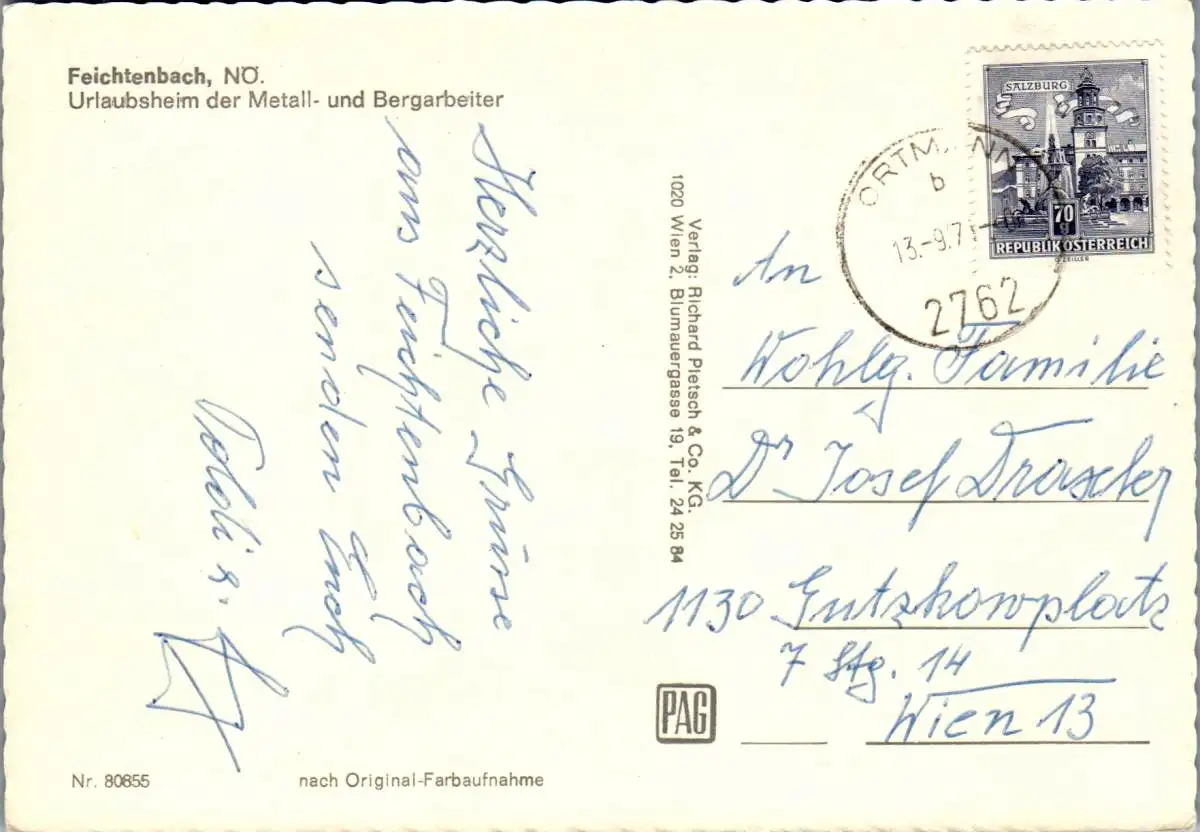 Feichtenbach, NÖ.
Urlaubsheim der Metall- und Bergarbeiter
Herzliche Grüsse
aus Feichtenbach
senden
Poldi &
Verlag: Richard Pietsch & Co. KG.
1020 Wien 2, Blumauergasse 19, Tel. 24 25 84
SALZBURG
70 g
REPUBLIK ÖSTERREICH
G. ZEILER
ORTMANN
b
13.-9.7
2762
An
Wohlg. Familie
Dr Josef
1130 Gutzkowplatz
7 Stg. 14
Wien 13
PAG
Nr. 80855
nach Original-Farbaufnahme